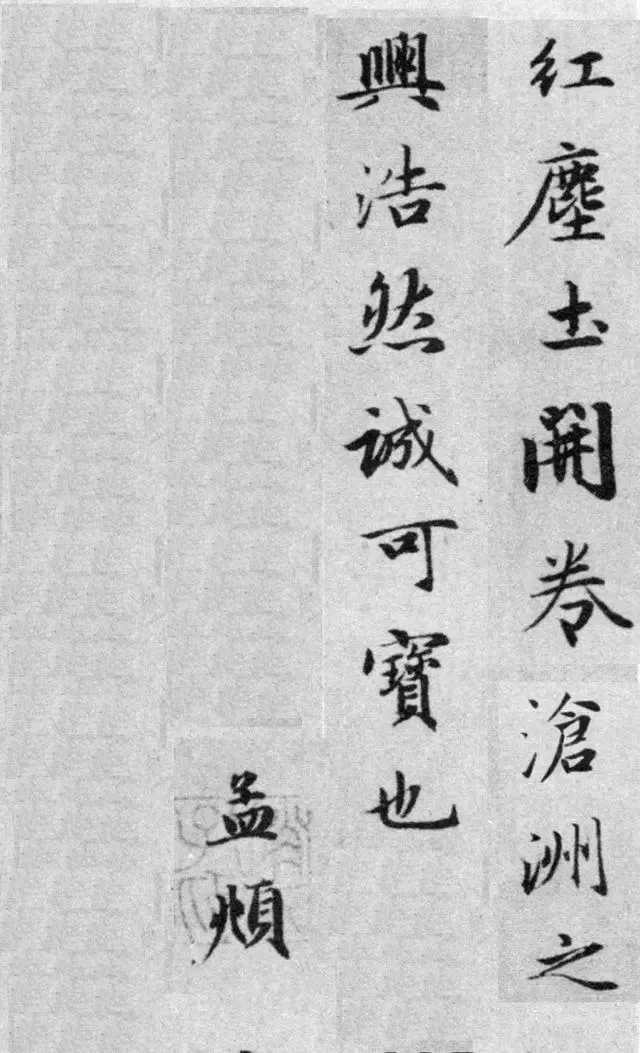 红塵土開卷滄洲之
興浩然誠可寳也
孟頫